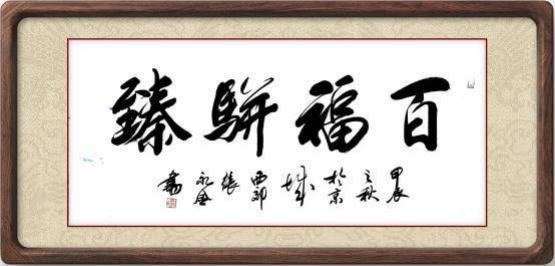 百福駢臻
甲辰之秋於京城西郊張永